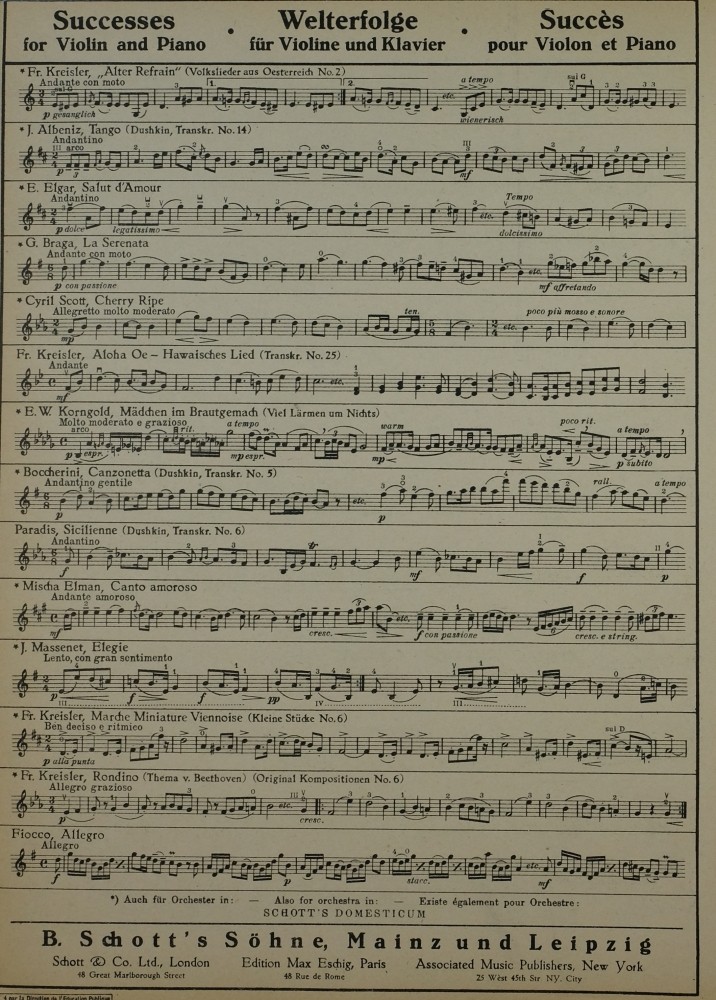 Successes • Welterfolge • Succès
for Violin and Piano für Violine und Klavier pour Violon et Piano
* Fr. Kreisler, „Alter Refrain“ (Volkslieder aus Oesterreich No. 2)
Andante con moto a tempo sul G
p gesanglich etc. wienerisch
* J. Albeniz, Tango (Dushkin, Transkr. No. 14)
Andantino
III arco III
p mf
* E. Elgar, Salut d'Amour
Andantino Tempo
p dolce legatissimo etc. dolcissimo
* G. Braga, La Serenata
Andante con moto
p con passione etc. mf affretando
* Cyril Scott, Cherry Ripe
Allegretto molto moderato ten. poco più mosso e sonore
mp etc.
Fr. Kreisler, Aloha Oe – Hawaisches Lied (Transkr. No. 25)
Andante
mf etc.
* E. W. Korngold, Mädchen im Brautgemach (Viel Lärmen um Nichts)
Molto moderato e grazioso a tempo warm poco rit. a tempo
arco rit.
p espr. mp espr. mp p subito
* Boccherini, Canzonetta (Dushkin, Transkr. No. 5)
Andantino gentile rall. a tempo
p etc. p
Paradis, Sicilienne (Dushkin, Transkr. No. 6)
Andantino tr
f mf f p
* Mischa Elman, Canto amoroso
Andante amoroso
mf cresc. etc. f con passione cresc. e string.
* J. Massenet, Elegie
Lento, con gran sentimento
p f f pp
III IV III
* Fr. Kreisler, Marche Miniature Viennoise (Kleine Stücke No. 6)
Ben deciso e ritmico sul D
p alla punta
* Fr. Kreisler, Rondino (Thema v. Beethoven) (Original Kompositionen No. 6)
Allegro grazioso III
p etc. cresc.
Fiocco, Allegro
Allegro
f p stacc. etc. mf
*) Auch für Orchester in: — Also for orchestra in: — Existe également pour Orchestre:
SCHOTT'S DOMESTICUM
B. Schott's Söhne, Mainz und Leipzig
Schott & Co. Ltd., London Edition Max Eschig, Paris Associated Music Publishers, New York
48 Great Marlborough Street 48 Rue de Rome 25 West 45th Str. NY. City
par la Direction de l'Education Publique